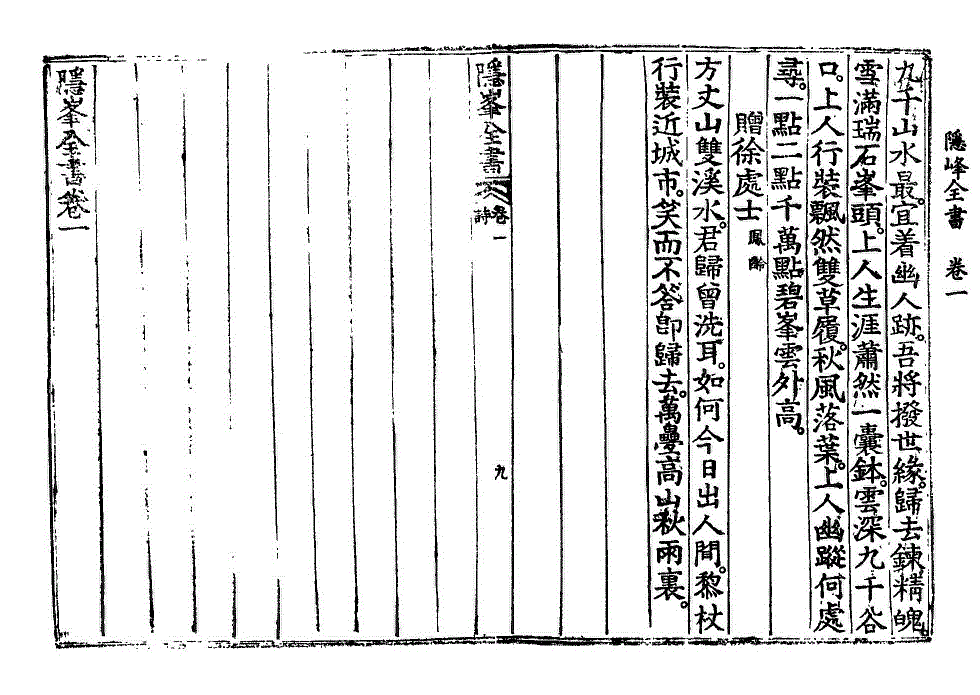 隱峰全書 卷一
九千山水最。宜着幽人跡。吾將撥世緣。歸去鍊精魄。
雪滿瑞石峯頭。上人生涯蕭然一囊鉢。雲深九千谷
口。上人行裝飄然雙草履。秋風落葉。上人幽蹤何處
尋。一點二點千萬點碧峯雲外高。
贈徐處士 鳳齡
方丈山雙溪水。君歸曾洗耳。如何今日出人間。黎杖
行裝近城市。笑而不答卽歸去。萬疊高山秋雨裏。
隱峯全書 卷一 詩 九
隱峯全書卷一